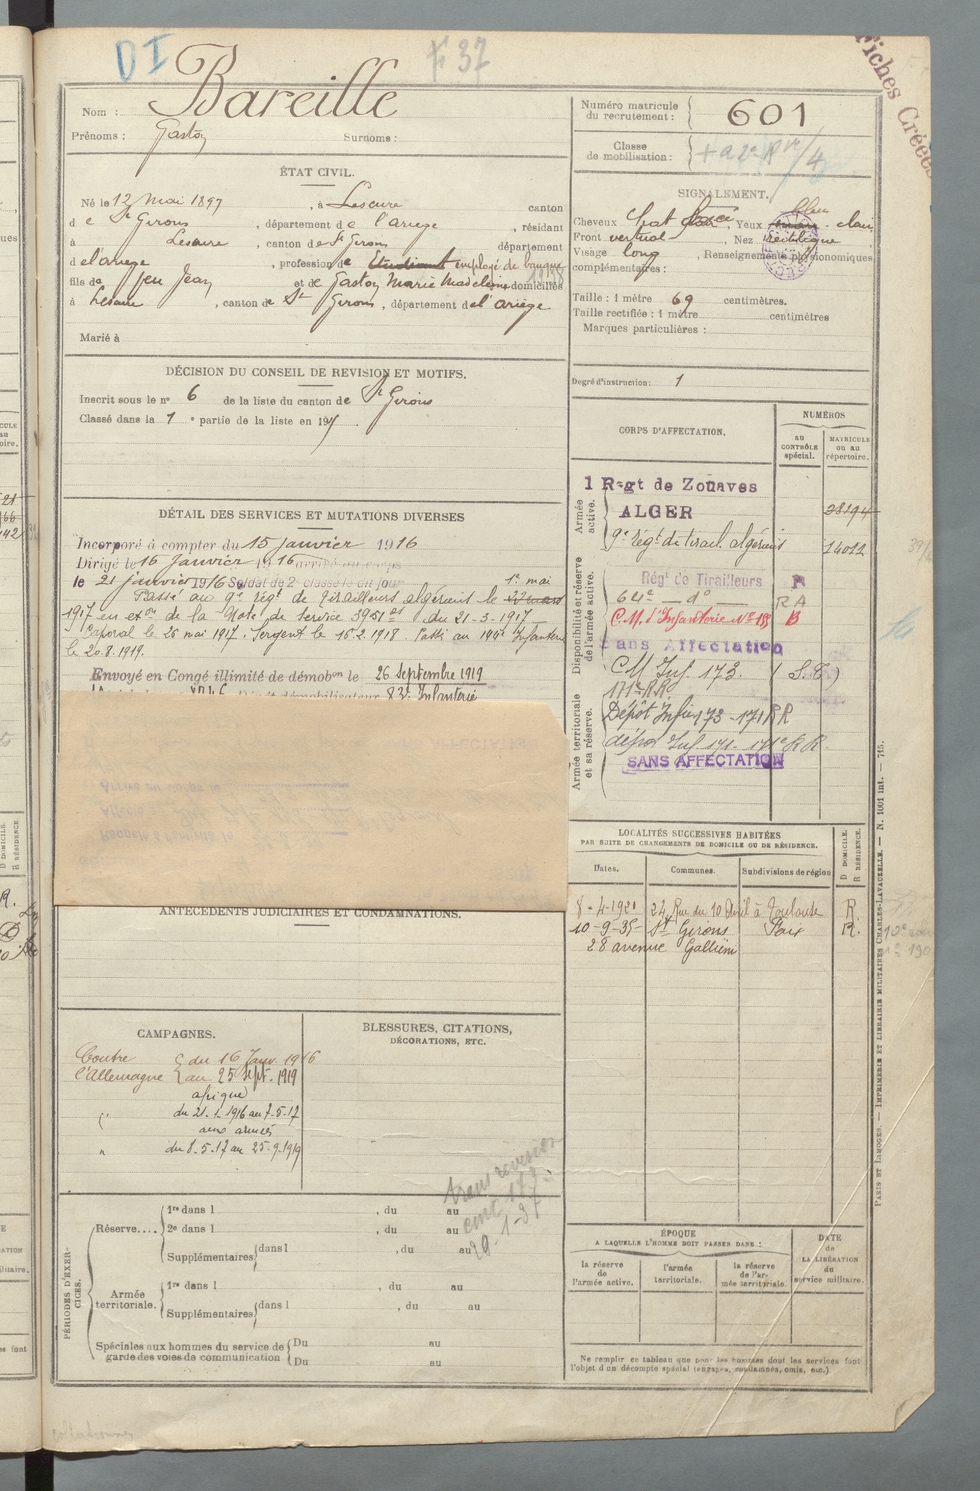 DI
F 37
Fiches Créées
Nom : Bareille
Prénoms : Gaston Surnoms :
Numéro matricule du recrutement : 601
Classe de mobilisation :
ÉTAT CIVIL.
Né le 12 Mai 1897, à Lescure canton
de St Girons, département de l'ariège, résidant
à Lescure, canton de St Girons département
de l'ariege, profession de Etudiant employé de banque
fils de feu Jean et de Gaston Marie Madeleine domiciliés
à Lescure, canton de St Girons, département de l'ariège
Marié à
SIGNALEMENT.
Cheveux chat foncé, Yeux bleu clair
Front vertical, Nez rectiligne
Visage long, Renseignements physionomiques
complémentaires :
Taille : 1 mètre 69 centimètres.
Taille rectifiée : 1 mètre centimètres
Marques particulières :
Degré d'instruction : 1
DÉCISION DU CONSEIL DE REVISION ET MOTIFS.
Inscrit sous le n° 6 de la liste du canton de St Girons
Classé dans la 1e partie de la liste en 191
DÉTAIL DES SERVICES ET MUTATIONS DIVERSES
Incorporé à compter du 15 janvier 1916
Dirigé le 16 Janvier 1916 arrivé au corps
le 21 janvier 1916 Soldat de 2e classe le dit jour
Passé au 9e rég. de Tirailleurs algériens le 1er mai
1917 en exon de la Note de Service 3951 du 21-3-1917
Caporal le 26 mai 1917. Sergent le 16.2.1918. Passé au Infanterie
le 20.8.1919.
Envoyé en Congé illimité de démobon le 26 Septembre 1919
Dépôt démobilisateur 83e Infanterie
CORPS D'AFFECTATION.
NUMÉROS
au CONTRÔLE spécial.
MATRICULE ou au répertoire.
Armée active.
1 Regt de Zouaves
ALGER 28194
9e Régt de tirail. algériens 14012
Disponibilité et réserve de l'armée active.
Régt de Tirailleurs R
64e — do — RA
C.M. d'Infanterie No 18 B
Sans Affectation
CM Inf. 173. (S.E)
171e RR.
Armée territoriale et sa réserve.
Dépôt Infie 173 - 171 RR
dépôt Inf 171 - 171e RR.
SANS AFFECTATION
Arrivé au corps le
Affecté
Rappelé à l'activité le
LOCALITÉS SUCCESSIVES HABITÉES
PAR SUITE DE CHANGEMENTS DE DOMICILE OU DE RÉSIDENCE.
Dates. Communes. Subdivisions de région D DOMICILE. R RÉSIDENCE.
8-4-1921 24 Rue du 10 Avril à Toulouse R.
10-9-35 St Girons Foix R.
28 avenue Galliéni
ANTÉCÉDENTS JUDICIAIRES ET CONDAMNATIONS.
CAMPAGNES.
Contre du 16 Janv. 1916
l'Allemagne au 25 Sept. 1919
afrique
du 21-1-1916 au 7-5-17
aux armées
du 8-5-17 au 25-9-1919
BLESSURES, CITATIONS,
DÉCORATIONS, ETC.
20-1-37
PÉRIODES D'EXERCICES.
Réserve.... 1re dans l , du au
2e dans l , du au
Supplémentaires dans l , du au
Armée territoriale. 1re dans l , du au
Supplémentaires dans l , du au
Spéciales aux hommes du service de garde des voies de communication Du au
Du au
ÉPOQUE
A LAQUELLE L'HOMME DOIT PASSER DANS :
la réserve de l'armée active.
l'armée territoriale.
la réserve de l'armée territoriale.
DATE DE LA LIBÉRATION du service militaire.
Ne remplir ce tableau que pour les hommes dont les services font
l'objet d'un décompte spécial (engagés, condamnés, omis, etc.).
PARIS ET LIMOGES. — IMPRIMERIE ET LIBRAIRIE MILITAIRES CHARLES-LAVAUZELLE. — N. 1001 int. — 715.